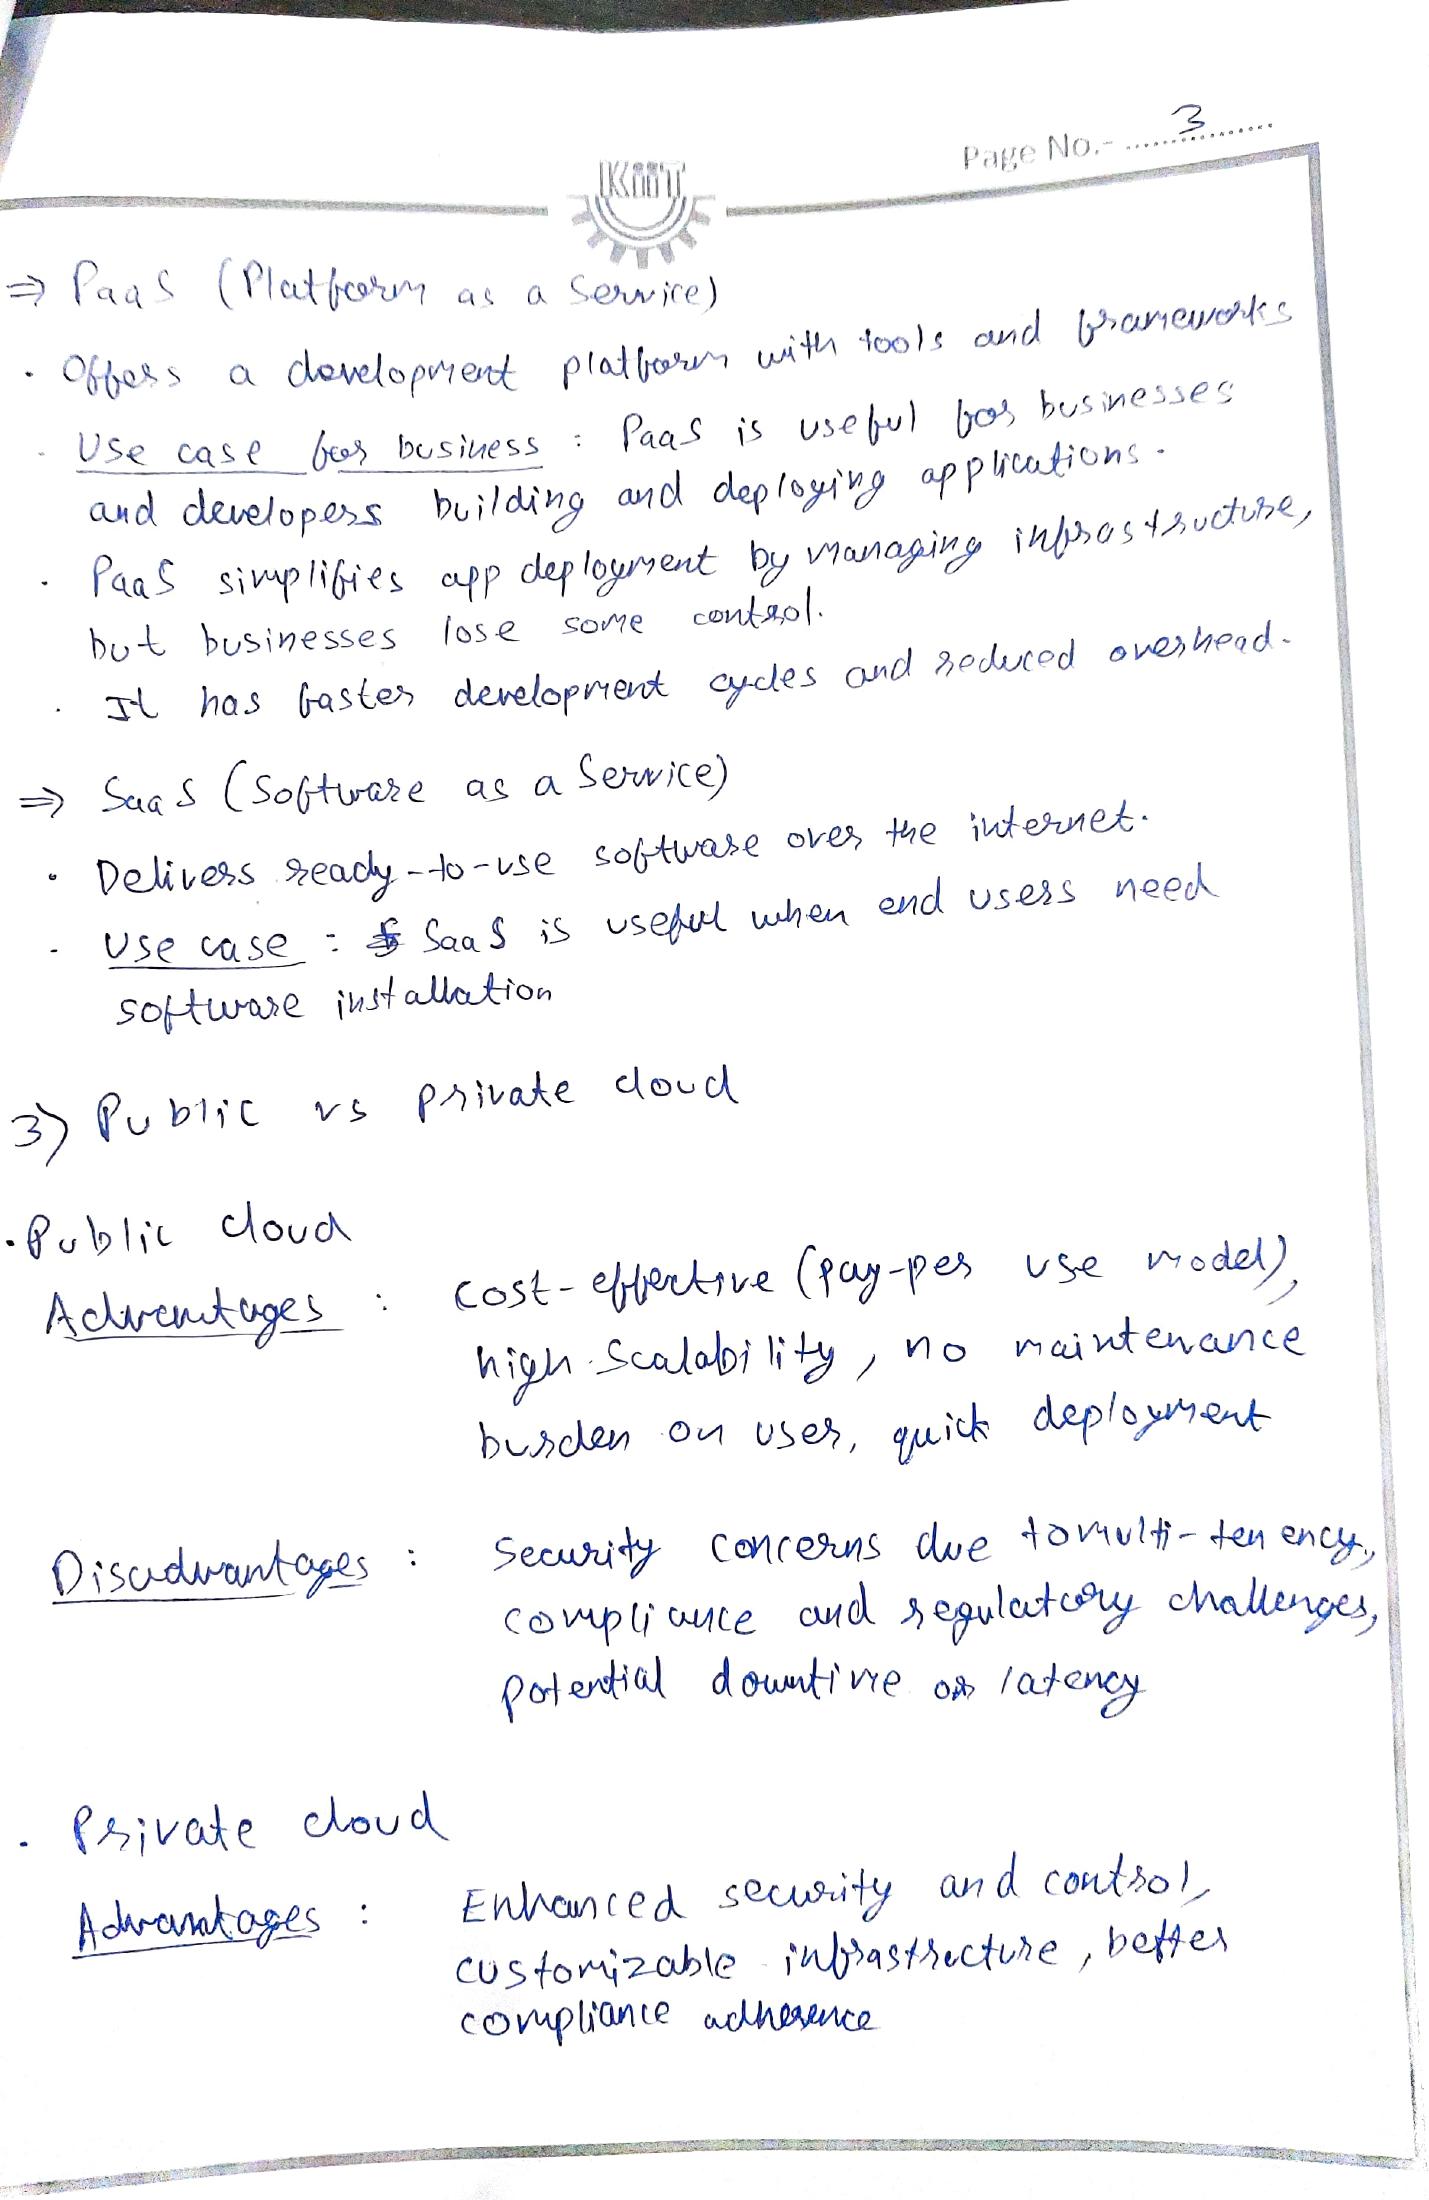 Page No.- ....3....
KiiT
⇒ PaaS (Platform as a Service)
• Offers a development platform with tools and frameworks
• Use case for business : PaaS is useful for businesses
and developers building and deploying applications.
• PaaS simplifies app deployment by managing infrastructure,
but businesses lose some control.
• It has faster development cycles and reduced overhead.
⇒ SaaS (Software as a Service)
• Delivers ready-to-use software over the internet.
• Use case : SaaS is useful when end users need
software installation
3) Public vs private cloud
• Public cloud
Advantages : cost-effective (pay-per use model),
high scalability, no maintenance
burden on user, quick deployment
Disadvantages : Security concerns due to multi-tenency,
compliance and regulatory challenges,
potential downtime or latency
• Private cloud
Advantages : Enhanced security and control,
customizable infrastructure, better
compliance adherence